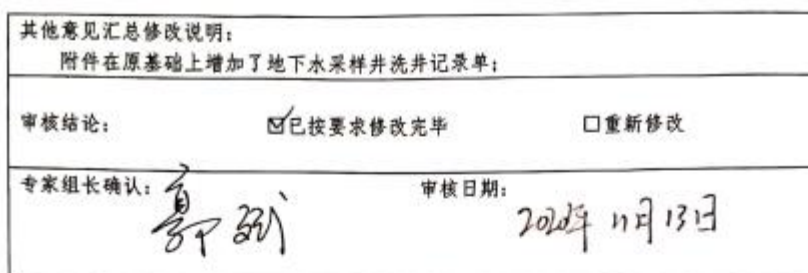 其他意见汇总修改说明：
附件在原基础上增加了地下水采样井洗井记录单；
审核结论： ☑已按要求修改完毕 □重新修改
专家组长确认：郭斌 审核日期：
2020年11月13日